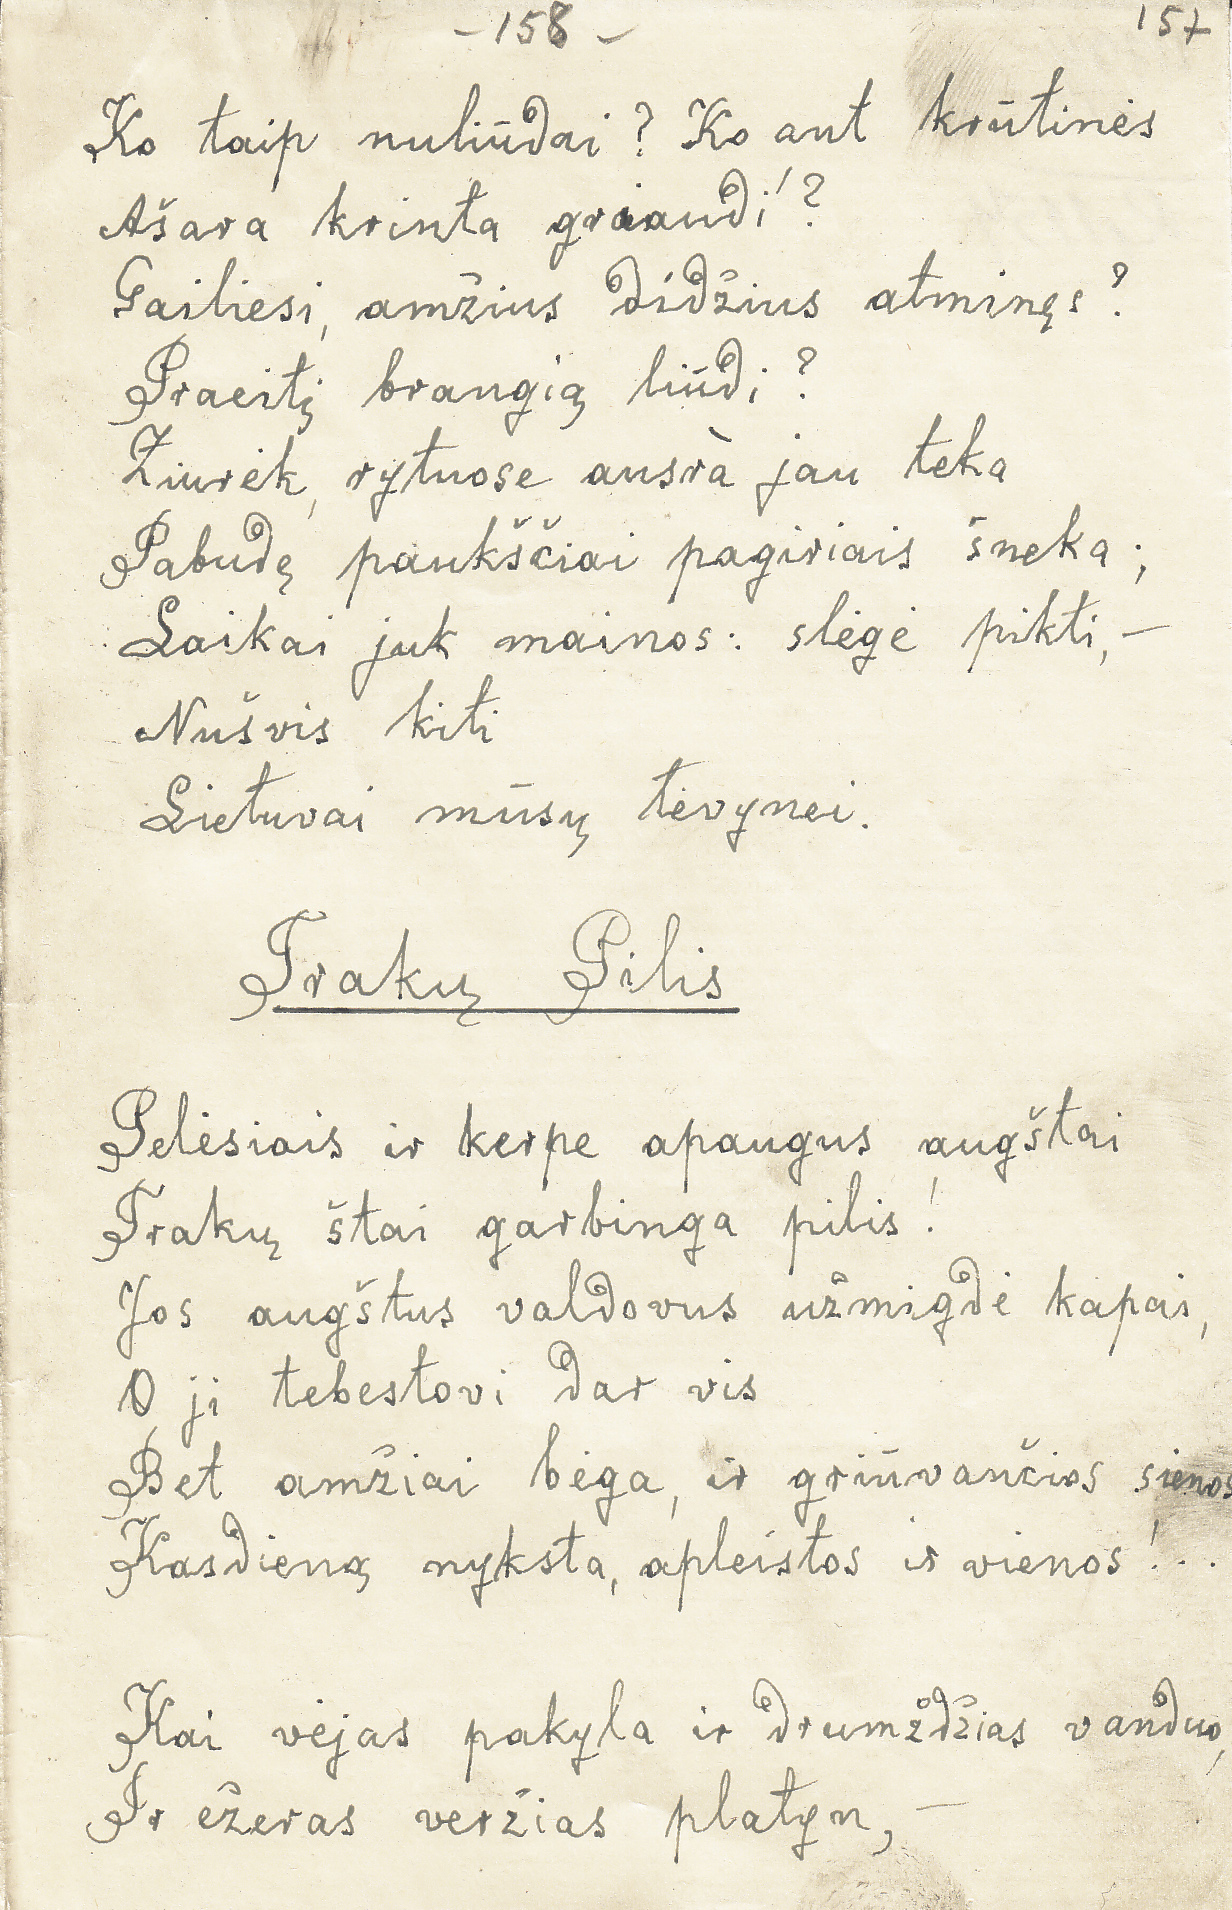 - 158 -
157
Ko taip nuliūdai? Ko ant krūtinės
Ašara krinta griaudi!?
Gailiesi, amžius didžius atminęs?
Praeitį brangią liūdi?
Žiurėk, rytuose ausrà jau teka
Pabudę paukščiai pagiriais šneka;
Laikai juk mainos: slėgė pikti,—
Nušvis kiti
Lietuvai mūsų tėvynei.
Trakų Pilis
Pelėsiais ir kerpe apaugus augštai
Trakų štai garbinga pilis!
Jos augštus valdovus užmigdė kapai,
O ji tebestovi dar vis
Bet amžiai bėga, ir griūvančios sienos
Kasdieną nyksta, apleistos ir vienos!..
Kai vėjas pakyla ir drumždžias vanduo,
Ir ežeras veržias platyn,—